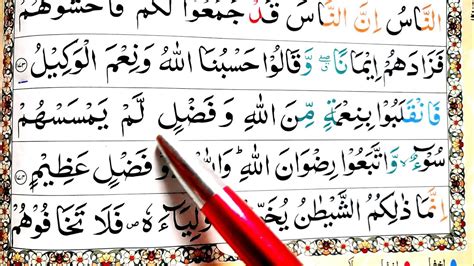 النَّاسُ اِنَّ النَّاسَ قَدْ جَمَعُوْا لَكُمْ فَاخْشَوْهُمْ
فَزَادَهُمْ اِيْمَانًا ۖ وَّ قَالُوْا حَسْبُنَا اللّٰهُ وَ نِعْمَ الْوَكِيْلُ ﴿۱۷۳﴾
فَانْقَلَبُوْا بِنِعْمَةٍ مِّنَ اللّٰهِ وَ فَضْلٍ لَّمْ يَمْسَسْهُمْ
سُوْٓءٌ ۙ وَّ اتَّبَعُوْا رِضْوَانَ اللّٰهِ ؕ وَ اللّٰهُ ذُوْ فَضْلٍ عَظِيْمٍ ﴿۱۷۴﴾
اِنَّمَا ذٰلِكُمُ الشَّيْطٰنُ فَلَا تَخَافُوْهُمْ